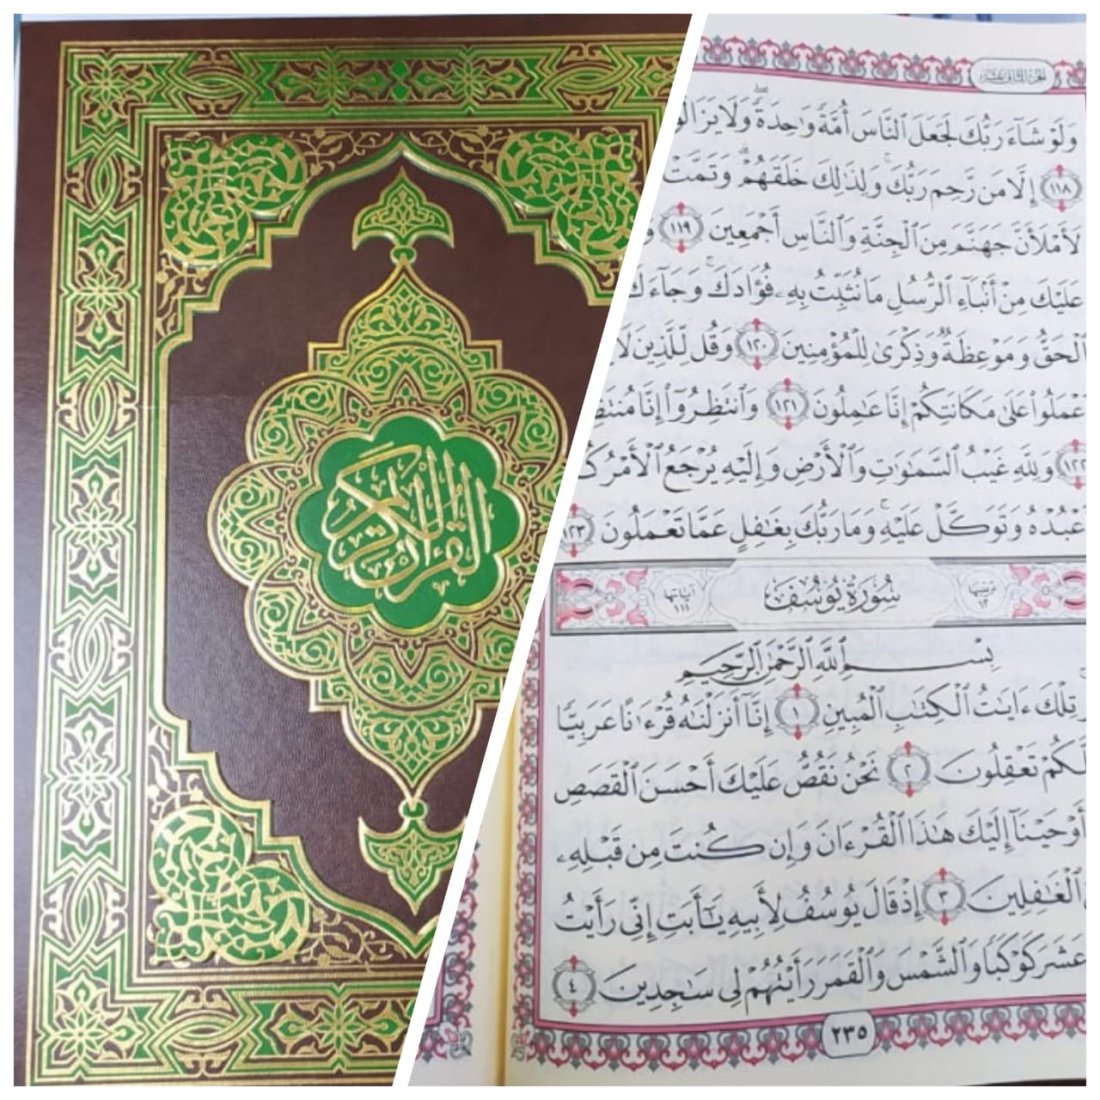 القرآن الكريم
الجزء الثاني عشر
وَلَوْ شَآءَ رَبُّكَ لَجَعَلَ ٱلنَّاسَ أُمَّةً وَٰحِدَةً ۖ وَلَا يَزَالُو
١١٨ إِلَّا مَن رَّحِمَ رَبُّكَ ۚ وَلِذَٰلِكَ خَلَقَهُمْ ۗ وَتَمَّتْ
لَأَمْلَأَنَّ جَهَنَّمَ مِنَ ٱلْجِنَّةِ وَٱلنَّاسِ أَجْمَعِينَ ١١٩ وَ
عَلَيْكَ مِنْ أَنۢبَآءِ ٱلرُّسُلِ مَا نُثَبِّتُ بِهِۦ فُؤَادَكَ ۚ وَجَآءَكَ
ٱلْحَقُّ وَمَوْعِظَةٌ وَذِكْرَىٰ لِلْمُؤْمِنِينَ ١٢٠ وَقُل لِّلَّذِينَ لَا
ٱعْمَلُوا۟ عَلَىٰ مَكَانَتِكُمْ إِنَّا عَٰمِلُونَ ١٢١ وَٱنتَظِرُوٓا۟ إِنَّا مُنتَظِ
١٢٢ وَلِلَّهِ غَيْبُ ٱلسَّمَٰوَٰتِ وَٱلْأَرْضِ وَإِلَيْهِ يُرْجَعُ ٱلْأَمْرُ كُ
عْبُدْهُ وَتَوَكَّلْ عَلَيْهِ ۚ وَمَا رَبُّكَ بِغَٰفِلٍ عَمَّا تَعْمَلُونَ ١٢٣
ترتيبها ١٢ سُورَةُ يُوسُفَ آياتها ١١١
بِسْمِ ٱللَّهِ ٱلرَّحْمَٰنِ ٱلرَّحِيمِ
تِلْكَ ءَايَٰتُ ٱلْكِتَٰبِ ٱلْمُبِينِ ١ إِنَّآ أَنزَلْنَٰهُ قُرْءَٰنًا عَرَبِيًّا
لَّكُمْ تَعْقِلُونَ ٢ نَحْنُ نَقُصُّ عَلَيْكَ أَحْسَنَ ٱلْقَصَصِ
أَوْحَيْنَآ إِلَيْكَ هَٰذَا ٱلْقُرْءَانَ وَإِن كُنتَ مِن قَبْلِهِۦ
ٱلْغَٰفِلِينَ ٣ إِذْ قَالَ يُوسُفُ لِأَبِيهِ يَٰٓأَبَتِ إِنِّى رَأَيْتُ
عَشَرَ كَوْكَبًا وَٱلشَّمْسَ وَٱلْقَمَرَ رَأَيْتُهُمْ لِى سَٰجِدِينَ ٤
٢٣٥